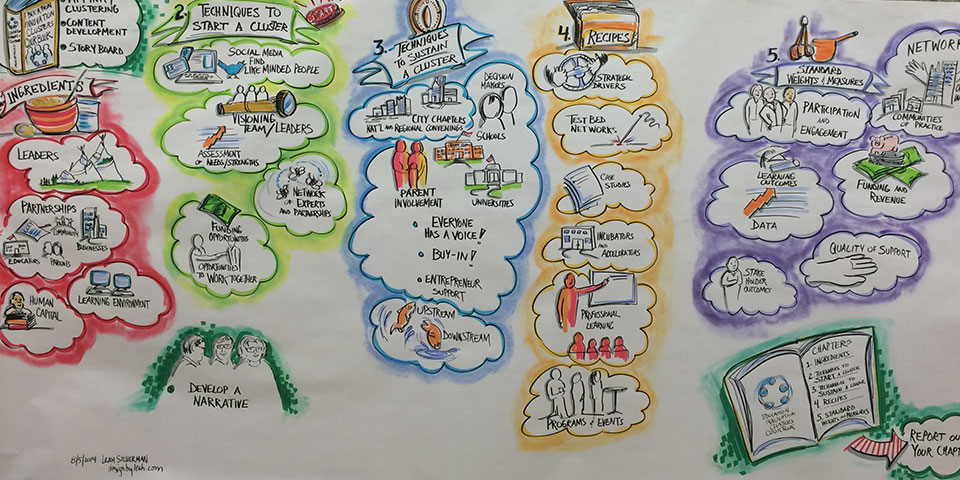 CLUSTERING
• CONTENT
DEVELOPMENT
• STORY BOARD
EDUCATION
INNOVATION
CLUSTERS
INGREDIENTS
LEADERS
PARTNERSHIPS
BUSINESSES
EDUCATORS
PARENTS
LEARNING ENVIRONMENT
HUMAN
CAPITAL
2.
TECHNIQUES TO
START A CLUSTER
SOCIAL MEDIA
FIND
LIKE MINDED PEOPLE
VISIONING
TEAM/LEADERS
ASSESSMENT
OF NEEDS/STRENGTHS
NETWORK
OF EXPERTS
AND PARTNERSHIPS
FUNDING
OPPORTUNITIES
OPPORTUNITIES
TO WORK TOGETHER
• DEVELOP A
NARRATIVE
8/5/2014 LEAH SILVERMAN
designbyleah.com
3.
TECHNIQUES
TO SUSTAIN
A CLUSTER
DECISION
MAKERS
CITY CHAPTERS
NAT'L AND REGIONAL CONVENINGS
SCHOOLS
PARENT
INVOLVEMENT
UNIVERSITIES
• EVERYONE
HAS A VOICE!
• BUY-IN!
• ENTREPRENEUR
SUPPORT
UPSTREAM
DOWNSTREAM
4.
RECIPES
STRATEGIC
DRIVERS
TEST BED
NETWORKS
CASE
STUDIES
INCUBATORS
AND
ACCELERATORS
PROFESSIONAL
LEARNING
PROGRAMS & EVENTS
5.
STANDARD
WEIGHTS & MEASURES
NETWORK
COMMUNITIES
OF PRACTICE
PARTICIPATION
AND
ENGAGEMENT
LEARNING
OUTCOMES
DATA
FUNDING AND
REVENUE
QUALITY OF SUPPORT
STAKE
HOLDER
OUTCOMES
EDUCATION
INNOVATION
CLUSTERS
COOKBOOK
CHAPTERS
1. INGREDIENTS
2. TECHNIQUES TO
START A CLUSTER
3. TECHNIQUES TO
SUSTAIN A CLUSTER
4. RECIPES
5. STANDARD
WEIGHTS AND MEASURES
REPORT OU
YOUR CHAPT